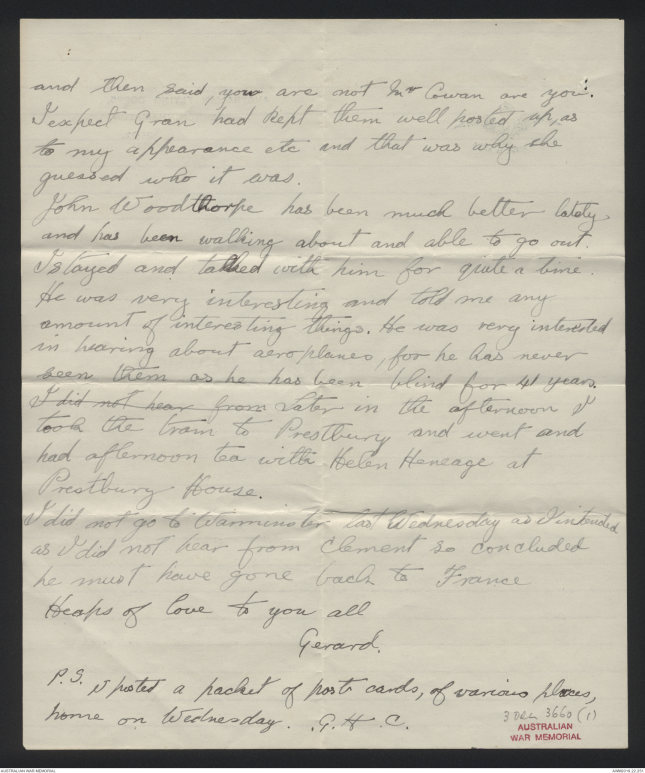 and then said, you are not Mr Cowan are you.
I expect Gran had kept them well posted up, as
to my appearance etc and that was why she
guessed who it was.
John Woodthorpe has been much better lately,
and has been walking about and able to go out.
I stayed and talked with him for quite a time.
He was very interesting and told me any
amount of interesting things. He was very interested
in hearing about aeroplanes, for he has never
seen them as he has been blind for 41 years.
I did not hear from Later in the afternoon I
took the tram to Prestbury and went and
had afternoon tea with Helen Heneage at
Prestbury House.
I did not go to Warminster last Wednesday as I intended
as I did not hear from Clement so concluded
he must have gone back to France
Heaps of love to you all
Gerard.
P.S. I posted a packet of post cards, of various places,
home on Wednesday. G. H. C.
3 DRL 3660 (1)
AUSTRALIAN
WAR MEMORIAL
AUSTRALIAN WAR MEMORIAL